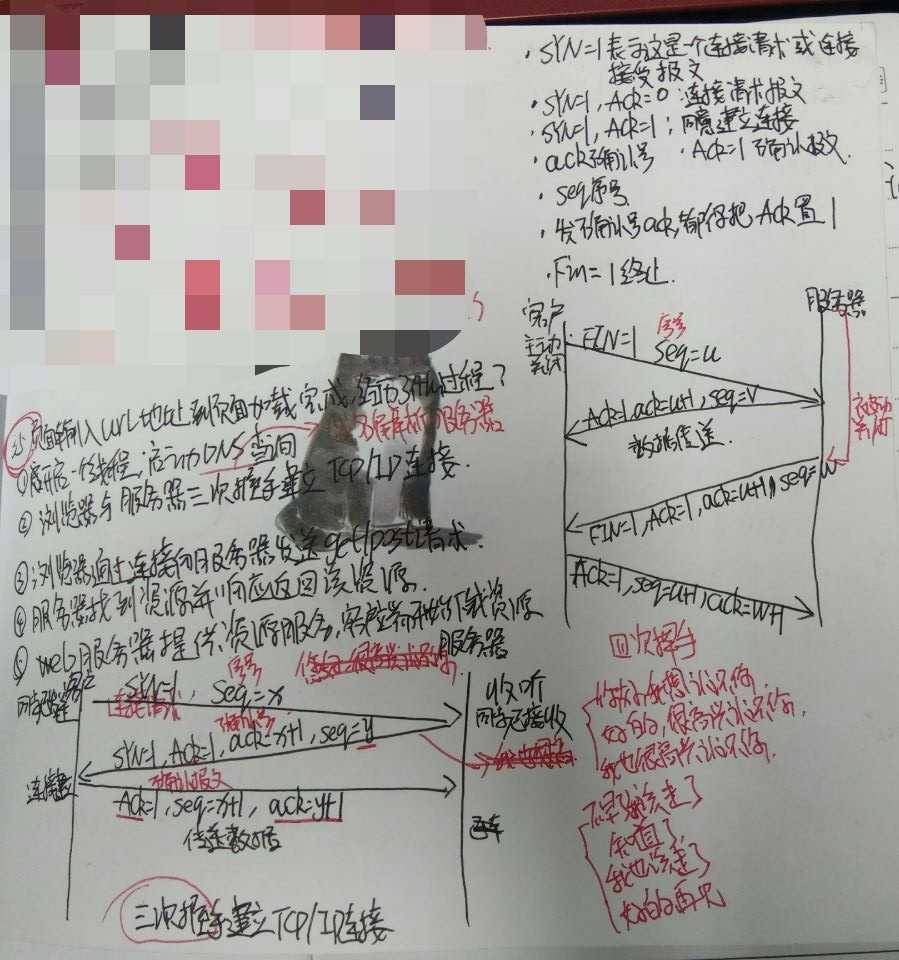 · SYN=1表示这是一个连接请求或连接
接受报文
· SYN=1, Ack=0 : 连接请求报文
· SYN=1, Ack=1 : 同意建立连接
· ack确认号 · Ack=1确认报文.
· seq序号
· 发确认号ack,都得把Ack置1
· Fin=1终止.
客户
服务器
主动关闭
FIN=1
序号
seq=u
Ack=1,ack=u+1,seq=v
数据传送.
被动关闭
FIN=1,Ack=1,ack=u+1,seq=w
Ack=1,seq=u+1,ack=w+1
四次挥手
25 页面输入url地址到页面加载完成,经历了什么过程?
服务器
①展开启一个线程,启动DNS查询
②浏览器与服务器三次握手建立TCP/IP连接.
③浏览器通过连接向服务器发送get/post请求.
④服务器找到资源并响应返回该资源.
⑤web服务器提供资源服务,客户端开始下载资源
客户
序号
服务器
SYN=1, seq=x
连接请求
收听
确认号
同意接收
SYN=1,Ack=1,ack=x+1,seq=y
连接建立
确认报文
Ack=1,seq=x+1,ack=y+1
传送数据
三次握手建立TCP/IP连接
你好,我想认识你.
好的,很高兴认识你.
我也很高兴认识你.
不早了,我该走了
知道了
我也该走了
好的再见